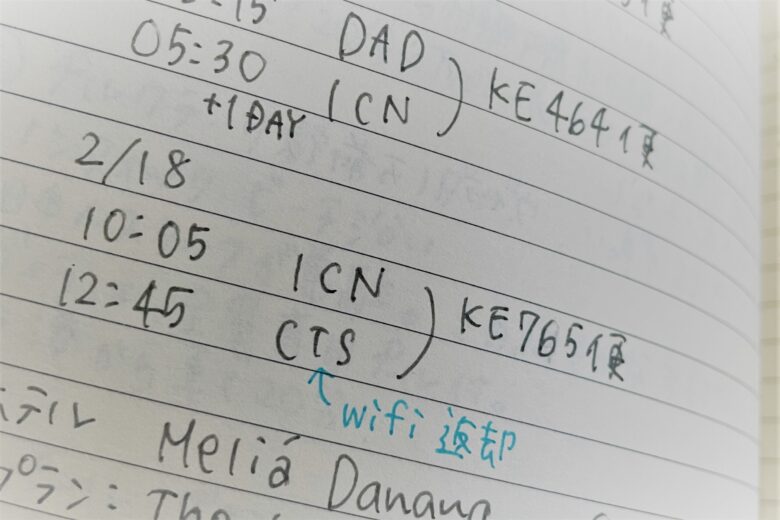 :15 DAD
05:30 ICN
+1DAY
KE464便
2/18
10:05 ICN
12:45 CTS
KE765便
↑wifi返却
テル Meliá Danang
プラン: The